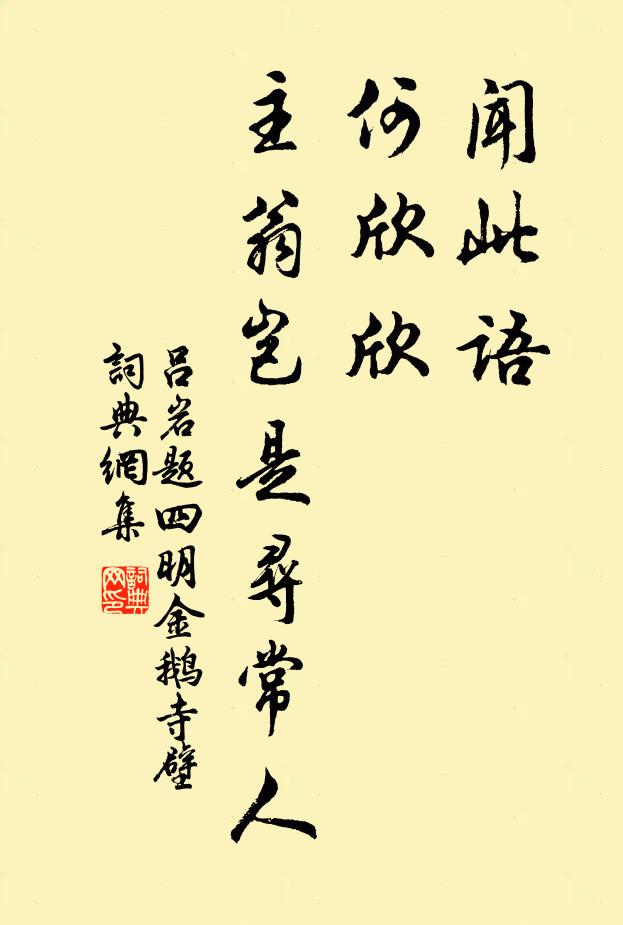 闻此语
何欣欣
主翁岂是尋常人
吕岩题四明金鹅寺壁
詞典網集
詞典网印